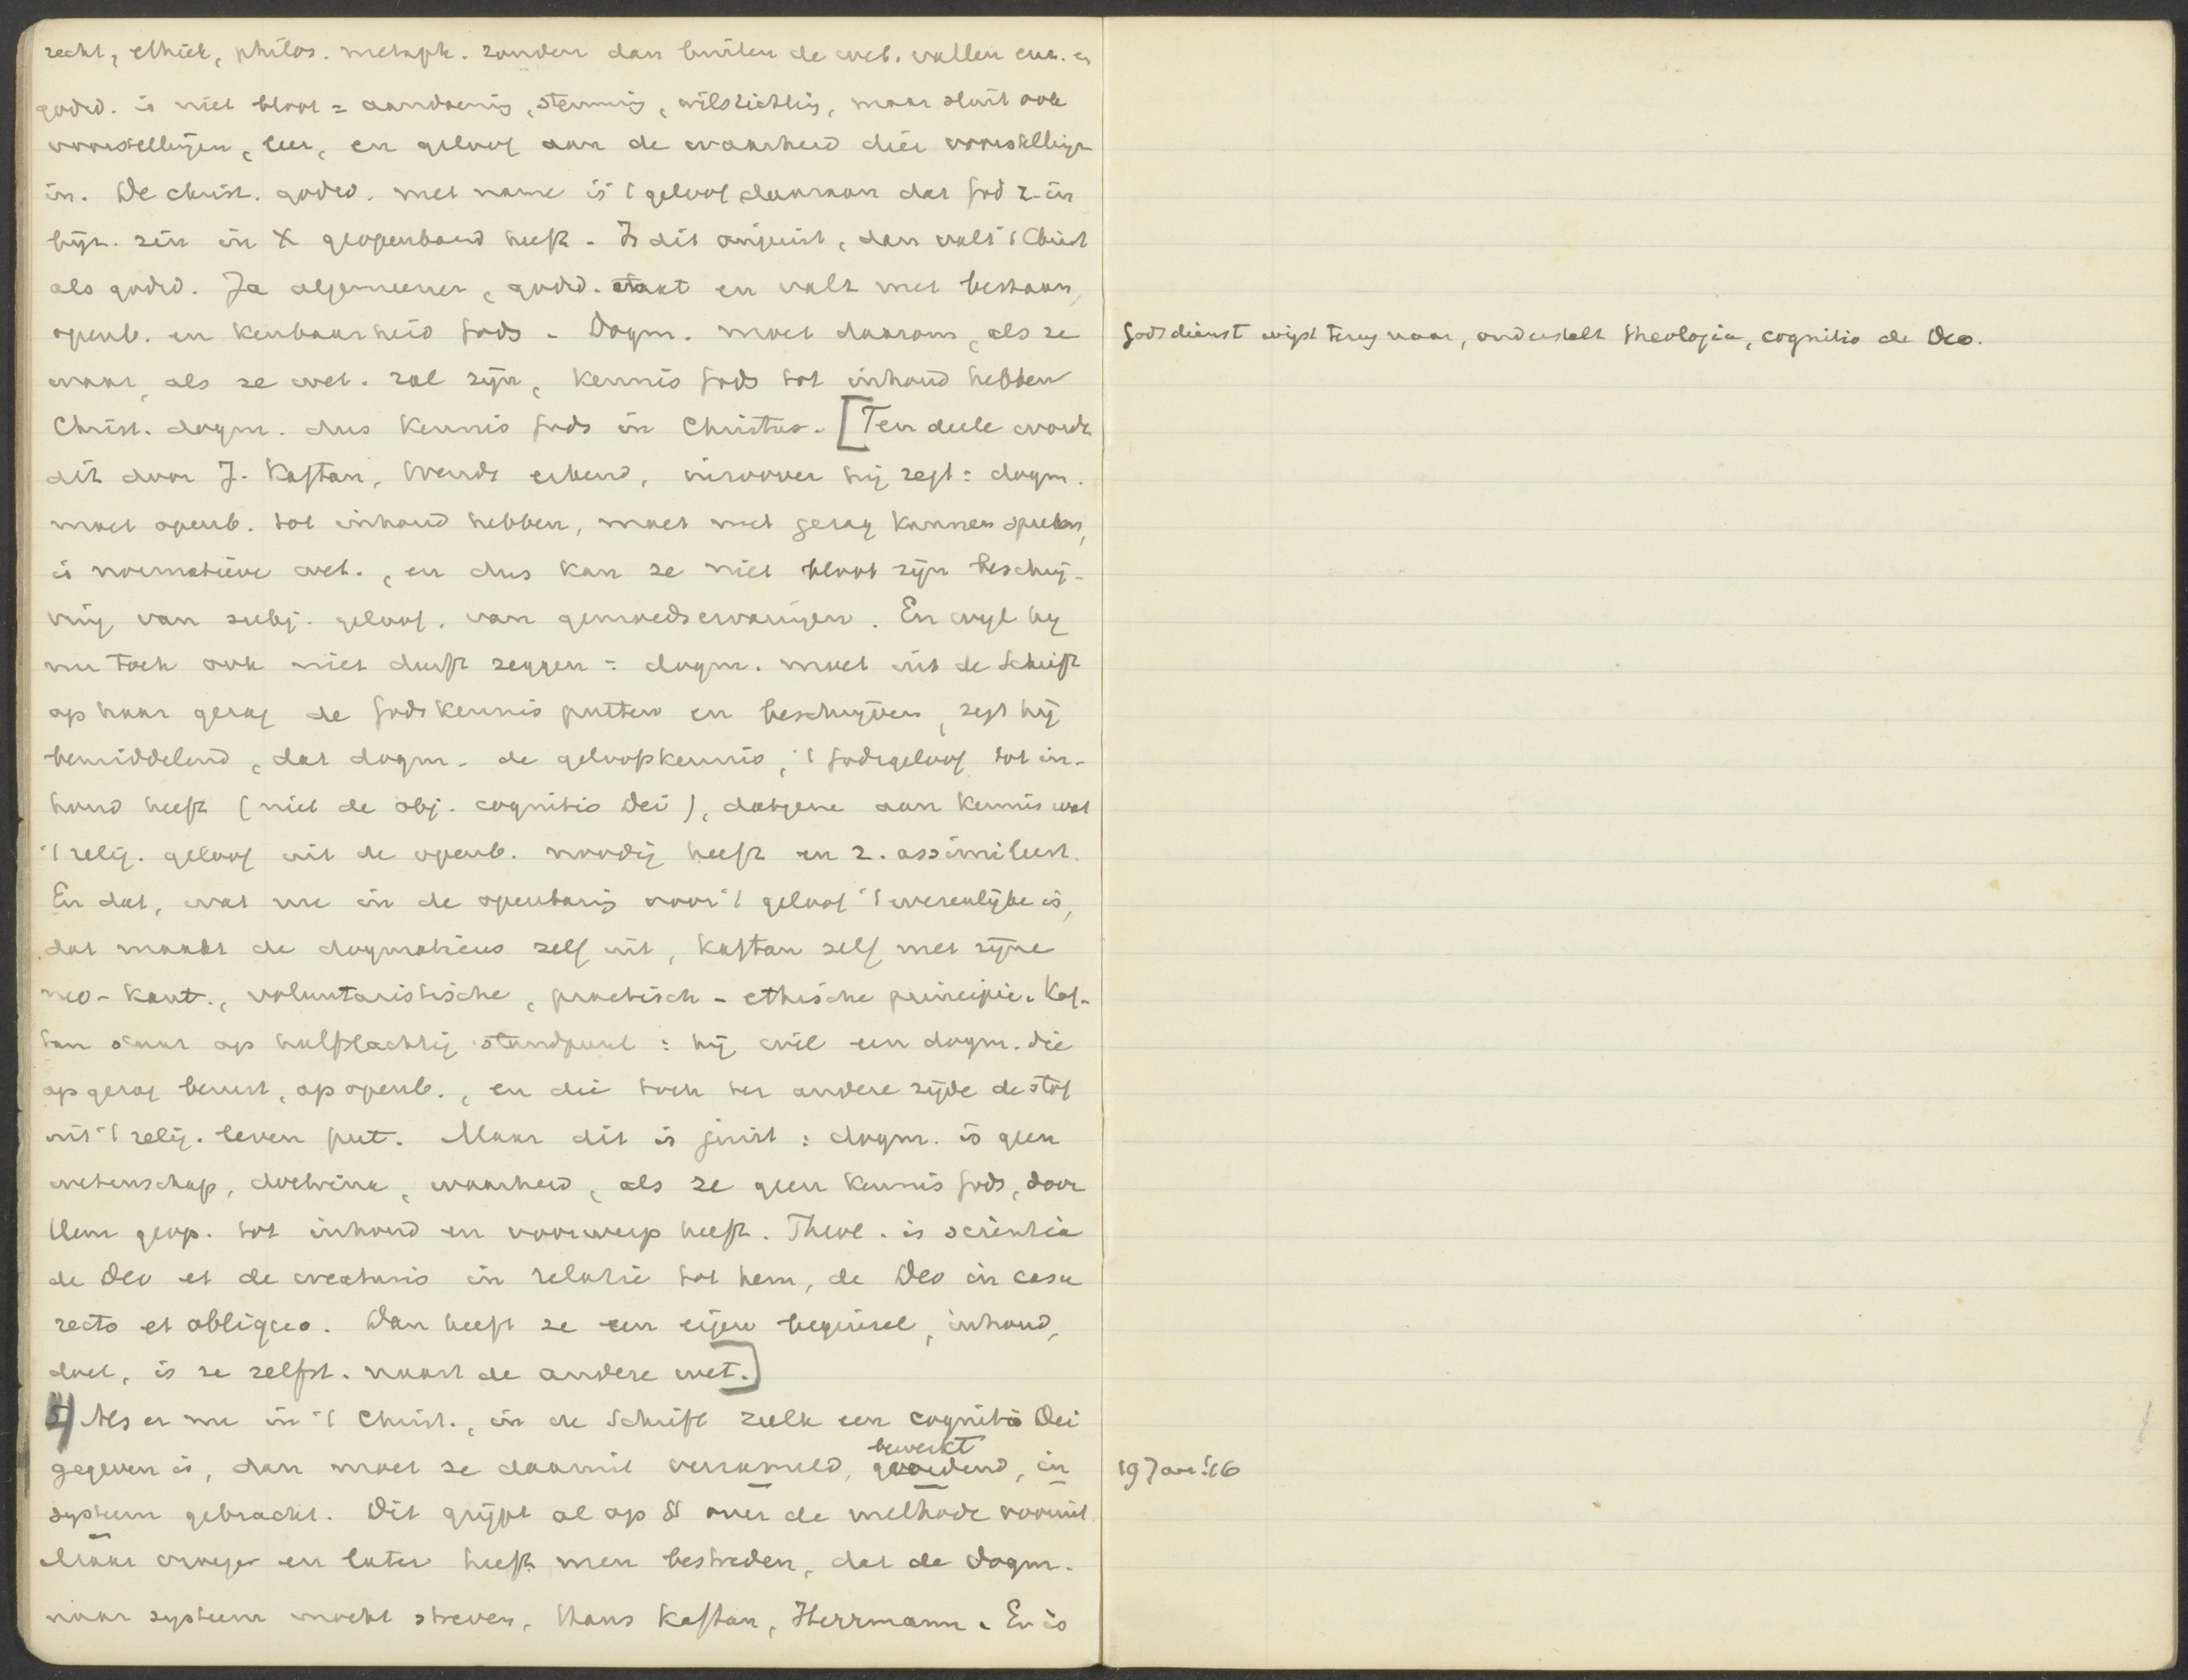 recht, ethiek, philos. metaph. zouden dan buiten de wet. vallen enz. en
godsd. is niet bloot = aandoenig, stemmig, wilsrichtig, maar sluit ook
voorstellingen, leer, en geloof aan de waarheid dier voorstellingen
in. De christ. godsd. met name is 't geloof daaraan dat God z. in
bijz. zin in X geopenbaard heeft. Is dit onjuist, dan valt 't Christ
als godsd. Ja algemeener, godsd. staat en valt met bestaan,
openb. en kenbaarheid Gods. Dogm. moet daarom, als ze
waar, als ze wet. zal zijn, kennis Gods tot inhoud hebben
Christ. dogm. dus kennis Gods in Christus. [Ten deele wordt
dit door J. Kaftan, Wendt erkend, inzoover hij zegt: dogm.
moet openb. tot inhoud hebben, moet met gezag kunnen spreken,
is normatieve wet., en dus kan ze niet bloot zijn beschrij-
ving van subj. geloof, van gemoedservaringen. En wyl hy
nu toch ook niet durft zeggen: dogm. moet uit de Schrift
op haar gezag de Godskennis putten en beschrijven, zegt hij
bemiddelend, dat dogm. de geloofskennis, 't Godsgeloof tot in-
houd heeft (niet de obj. cognitio Dei), datgene aan kennis wat
't relig. geloof uit de openb. noodig heeft en z. assimileert.
En dat, wat nu in de openbaring voor 't geloof 't wezenlijke is,
dat maakt de dogmaticus zelf uit, Kaftan zelf met zijne
neo-Kant., voluntaristische, practisch-ethische principie. Kaf-
tan staat op halfslachtig standpunt: hij wil een dogm. die
op gezag berust, op openb., en die toch ter andere zijde de stof
uit 't relig. leven put. Maar dit is juist: dogm. is geen
wetenschap, doctrina, waarheid, als ze geen kennis Gods, door
Hem geop. tot inhoud en voorwerp heeft. Theol. is scientia
de Deo et de creaturis in relatie tot hem, de Deo in casu
recto et obliquo. Dan heeft ze een eigen beginsel, inhoud,
doel, is ze zelfst. naast de andere wet.]
5) Als er nu in 't Christ., in de Schrift zulk een cognitio Dei
bewerkt
gegeven is, dan moet ze daaruit verzameld, geordend, in
systeem gebracht. Dit grijpt al op § over de methode vooruit.
Maar vroeger en later heeft men bestreden, dat de Dogm.
naar systeem mocht streven, thans Kaftan, Herrmann. Er is
Godsdienst wijst terug naar, onderstelt theologia, cognitio de Deo.
19 Jan. '16